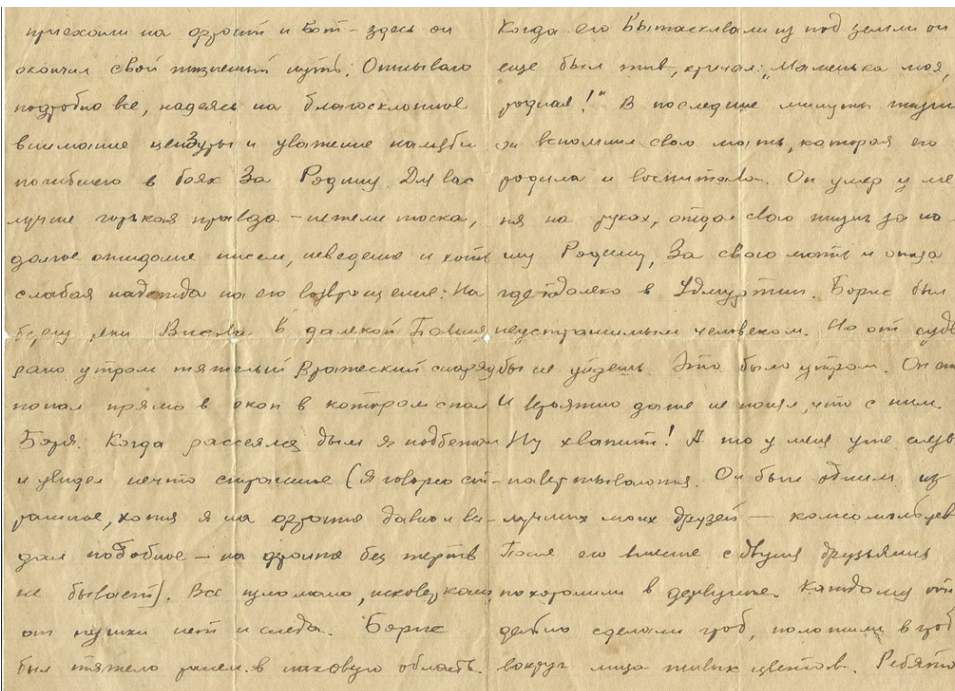 приехали на фронт и вот - здесь он
окончил свой жизненный путь. Описываю
подробно все, надеясь на благосклонное
внимание цензуры и уважение к
погибшего в боях За Родину. Для вас
лучше горькая правда - нежели тоска,
долгое ожидание писем, неведенье и хоть
слабая надежда на его возвращение: На
берегу реки Висла в далекой
рано утром тяжелый Вражеский снаряд
попал прямо в окоп в котором спал
Боря. Когда рассеялся дым я подбежал
и увидел нечто страшное (Я говорю ст-
рашное, хотя я на фронте давно и ви-
дал подобное - на фронте без жертв
не бывает). Все изломано, исковеркано,
от пушки нет и следа. Борис
был тяжело ранен в паховую область.
Когда его вытаскивали из под земли он
еще был жив, кричал: „Маменька моя,
родная!" В последние минуты жизни
он вспомнил свою мать, которая его
родила и воспитала. Он умер у ме
ня на руках, отдал свою жизнь за на
шу Родину, За свою мать и отца
где-то далеко в Удмуртии. Борис был
неустрашимым человеком. Но от судь
бы не уйдешь. Это было утром. Он
даже не понял, что с ним.
Ну хватит! А то у меня уже слезы
навертываются. Он был одним из
лучших моих друзей - комсомольцев
его вместе с двумя друзьями
похоронили в деревушке. Каждому от
дельно сделали гроб, положили в гроб
вокруг лица живых цветов. Ребята